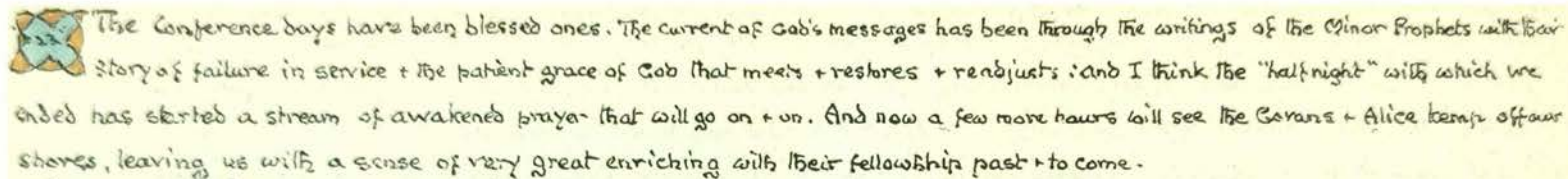 23 The Conference days have been blessed ones. The current of God's messages has been through the writings of the Minor Prophets with their
story of failure in service + the patient grace of God that meets + restores + readjusts : and I think the "half night" with which we
ended has started a stream of awakened prayer that will go on + on. And now a few more hours will see the Govans + Alice Kemp off our
shores, leaving us with a sense of very great enriching with their fellowship past + to come.